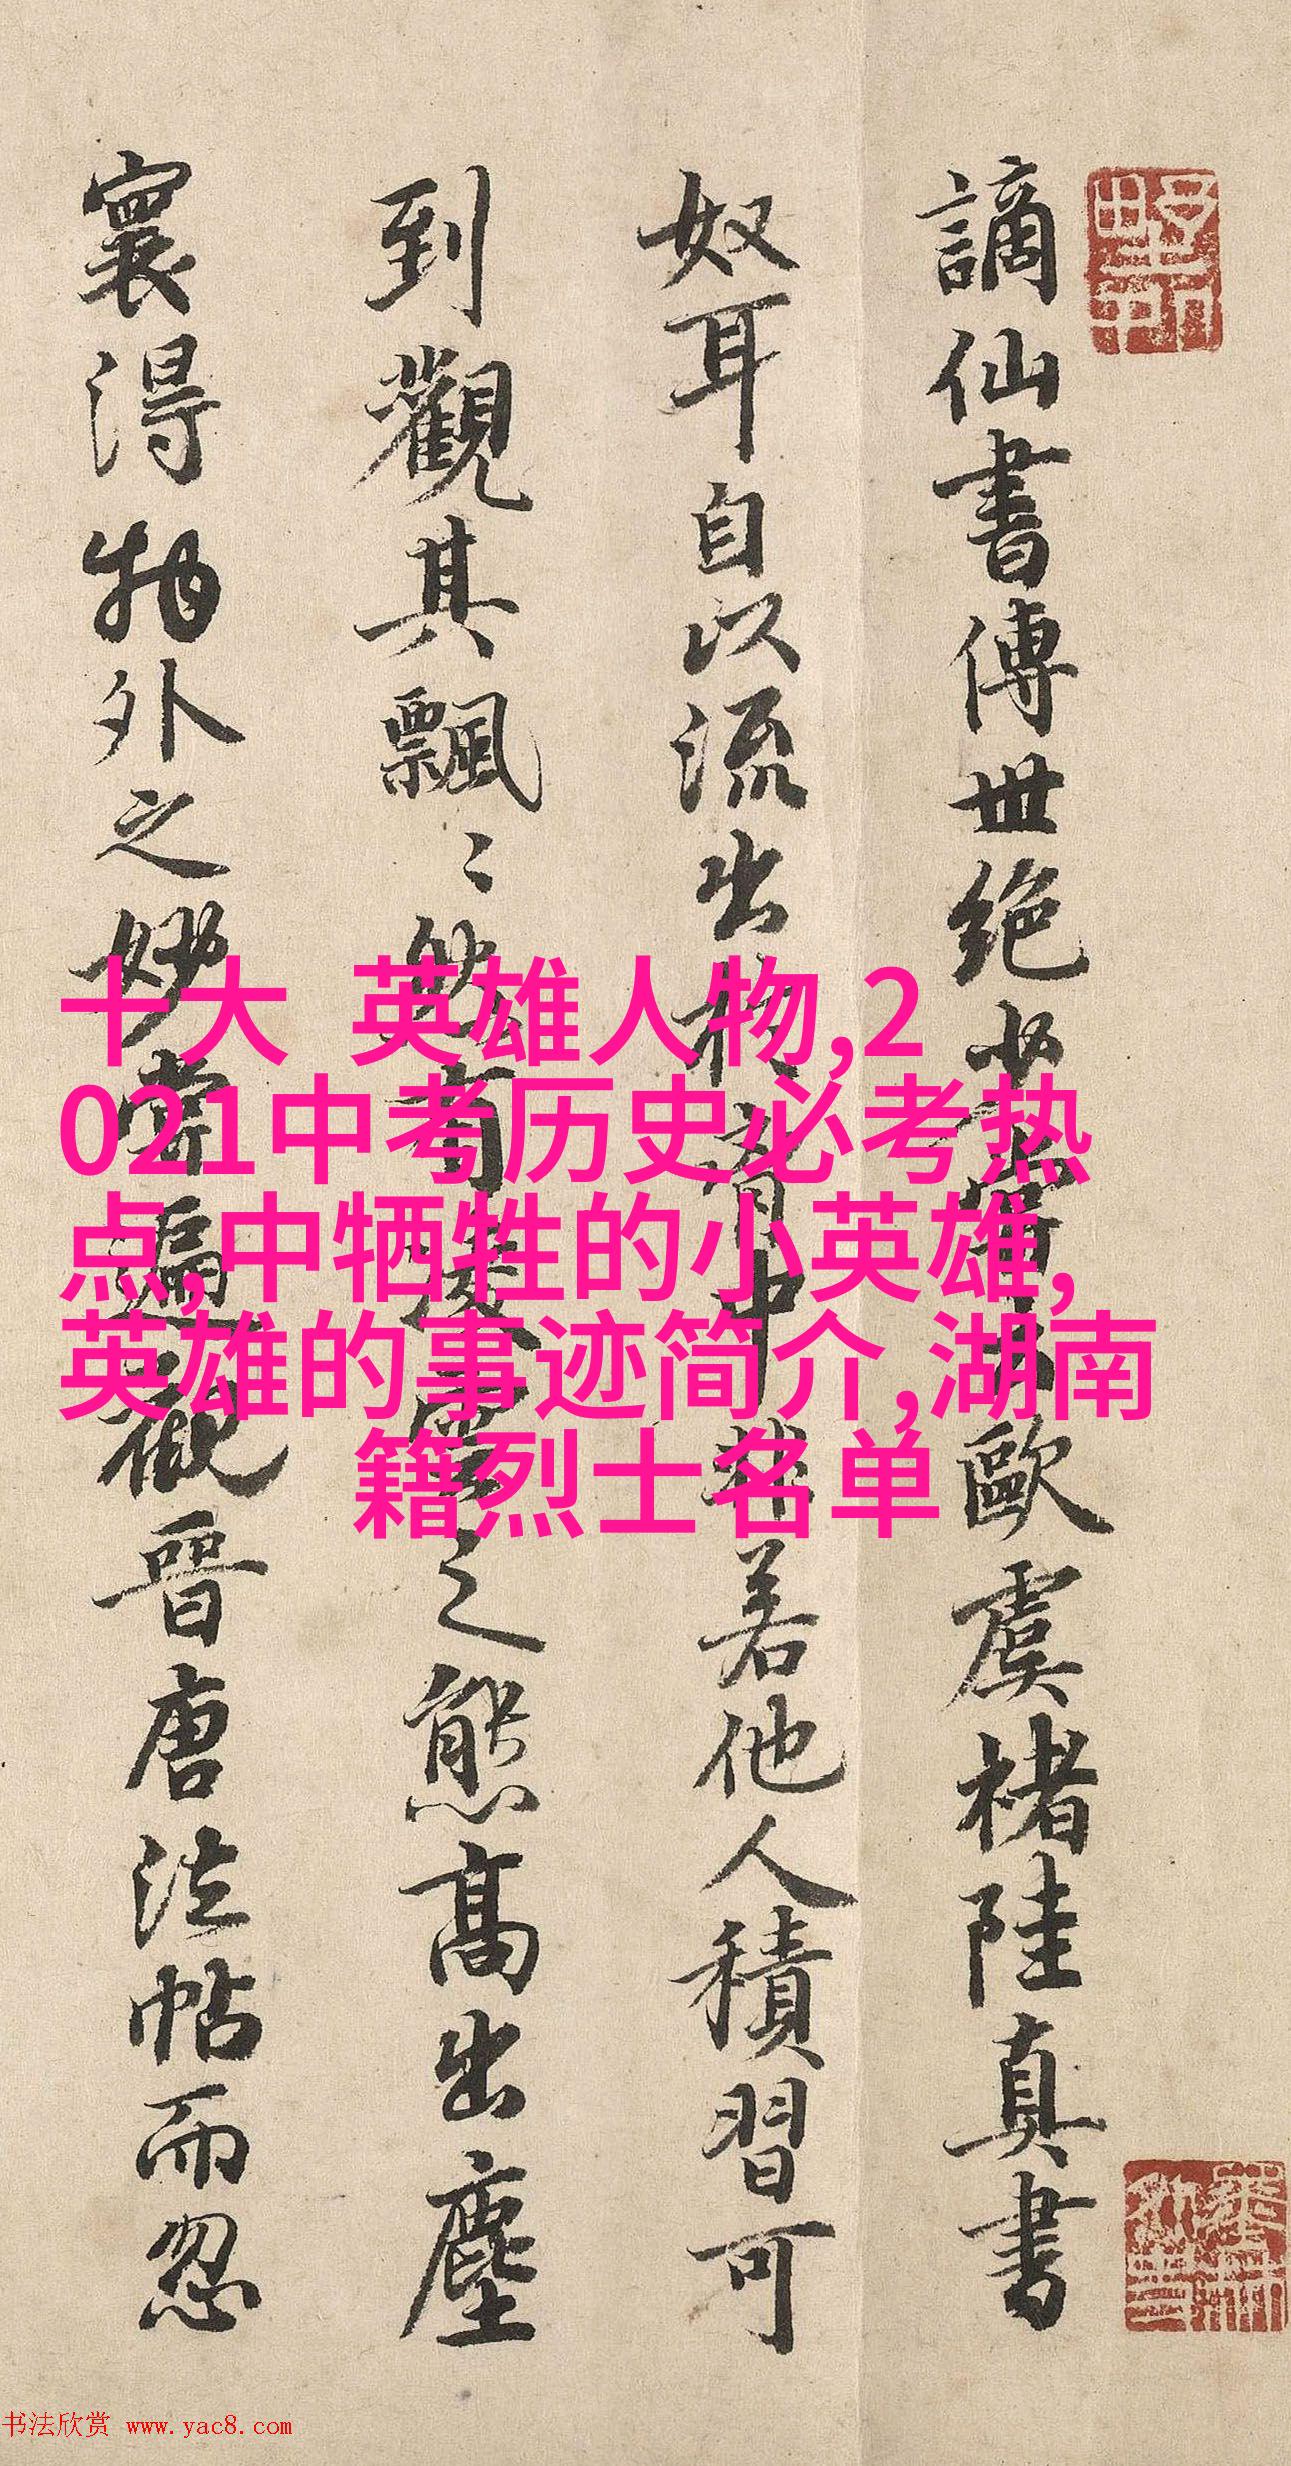 謫仙書傳世絕少嘗以歐虞褚陸真書
奴耳自以流出於胷中非若他人積習可
到觀其飄〻然有凌雲之態高出塵
寰得物外之妙嘗遍觀晉唐法帖而忽
十大 英雄人物,2
021中考历史必考热
点,中牺牲的小英雄,
英雄的事迹简介,湖南
籍烈士名单
书法欣赏 www.yac8.com